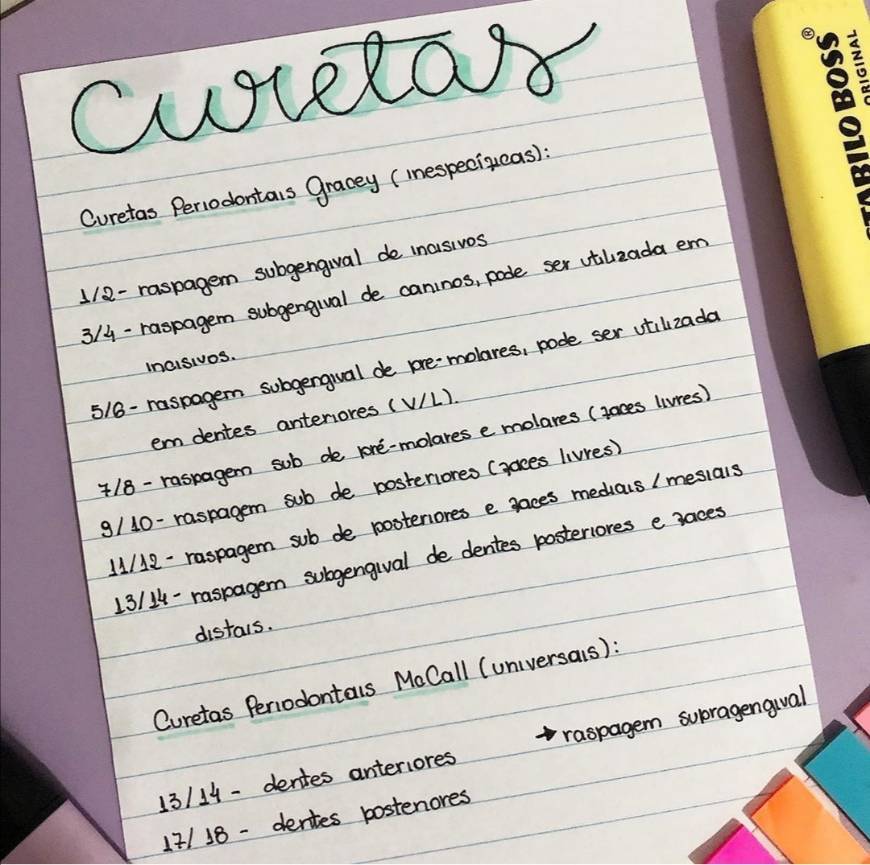 Curetas
Curetas Periodontais Gracey (inespecíficas):
1/2 - raspagem subgengival de incisivos
3/4 - raspagem subgengival de caninos, pode ser utilizada em
incisivos.
5/6 - raspagem subgengival de pre-molares, pode ser utilizada
em dentes anteriores (V/L).
7/8 - raspagem sub de pré-molares e molares (faces livres)
9/10 - raspagem sub de posteriores (faces livres)
11/12 - raspagem sub de posteriores e faces mediais / mesiais
13/14 - raspagem subgengival de dentes posteriores e faces
distais.
Curetas Periodontais MaCall (universais):
→ raspagem supragengival
13/14 - dentes anteriores
17/18 - dentes posteriores
STABILO BOSS®
ORIGINAL